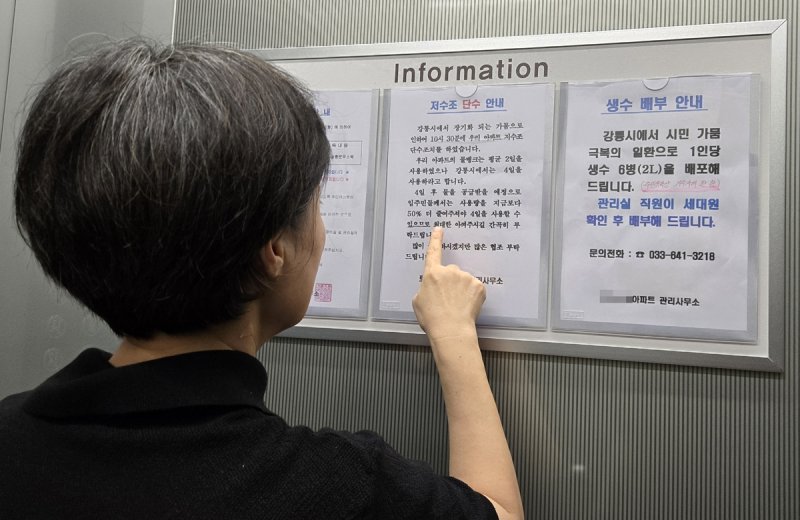 Information
내
저수조 단수 안내
강릉시에서 장기화 되는 가뭄으로
인하여 10시 30분에 우리 아파트 저수조
단수조치를 하였습니다.
우리 아파트의 물탱크는 평균 2일을
사용하였으나 강릉시에서는 4일을
사용하라고 합니다.
4일 후 물을 공급받을 예정으로
입주민들께서는 사용량을 지금보다
50% 더 줄여주셔야 4일을 사용할 수
있으므로 최대한 아껴주시길 간곡히 부
탁드립니
많이 하시겠지만 많은 협조 부탁
드립니
리사무소
생수 배부 안내
강릉시에서 시민 가뭄
극복의 일환으로 1인당
생수 6병(2L)을 배포해
드립니다.
관리실 직원이 세대원
확인 후 배부해 드립니다.
문의전화 : ☎ 033-641-3218
아파트 관리사무소